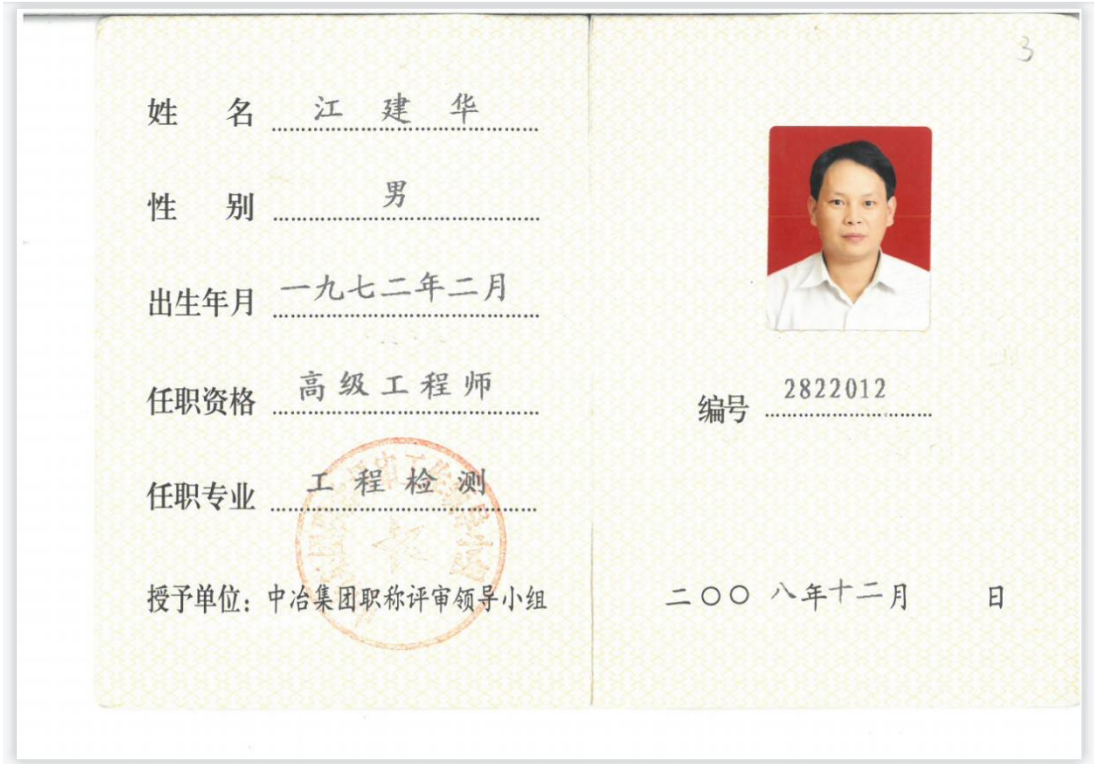 姓 名 江建华
性 别 男
出生年月 一九七二年二月
任职资格 高级工程师
任职专业 工程检测
授予单位：中冶集团职称评审领导小组
3
编号 2822012
二〇〇八年十二月 日